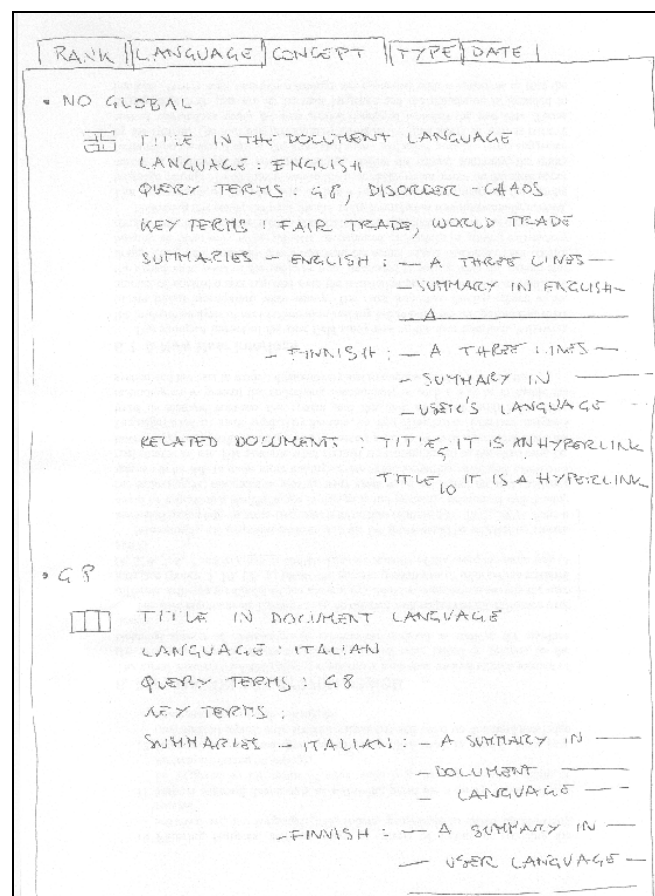 RANK LANGUAGE CONCEPT TYPE DATE
• NO GLOBAL
TITLE IN THE DOCUMENT LANGUAGE
LANGUAGE : ENGLISH
QUERY TERMS : G8, DISORDER - CHAOS
KEY TERMS : FAIR TRADE, WORLD TRADE
SUMMARIES - ENGLISH : — A THREE LINES —
— SUMMARY IN ENGLISH —
— A
- FINNISH : — A THREE LINES —
- SUMMARY IN —
- USER'S LANGUAGE -
RELATED DOCUMENT : TITLE5 IT IS AN HYPERLINK
TITLE10 IT IS A HYPERLINK
• G8
TITLE IN DOCUMENT LANGUAGE
LANGUAGE : ITALIAN
QUERY TERMS : G8
KEY TERMS :
SUMMARIES - ITALIAN : - A SUMMARY IN —
- DOCUMENT —
- LANGUAGE —
- FINNISH : — A SUMMARY IN —
— USER LANGUAGE —